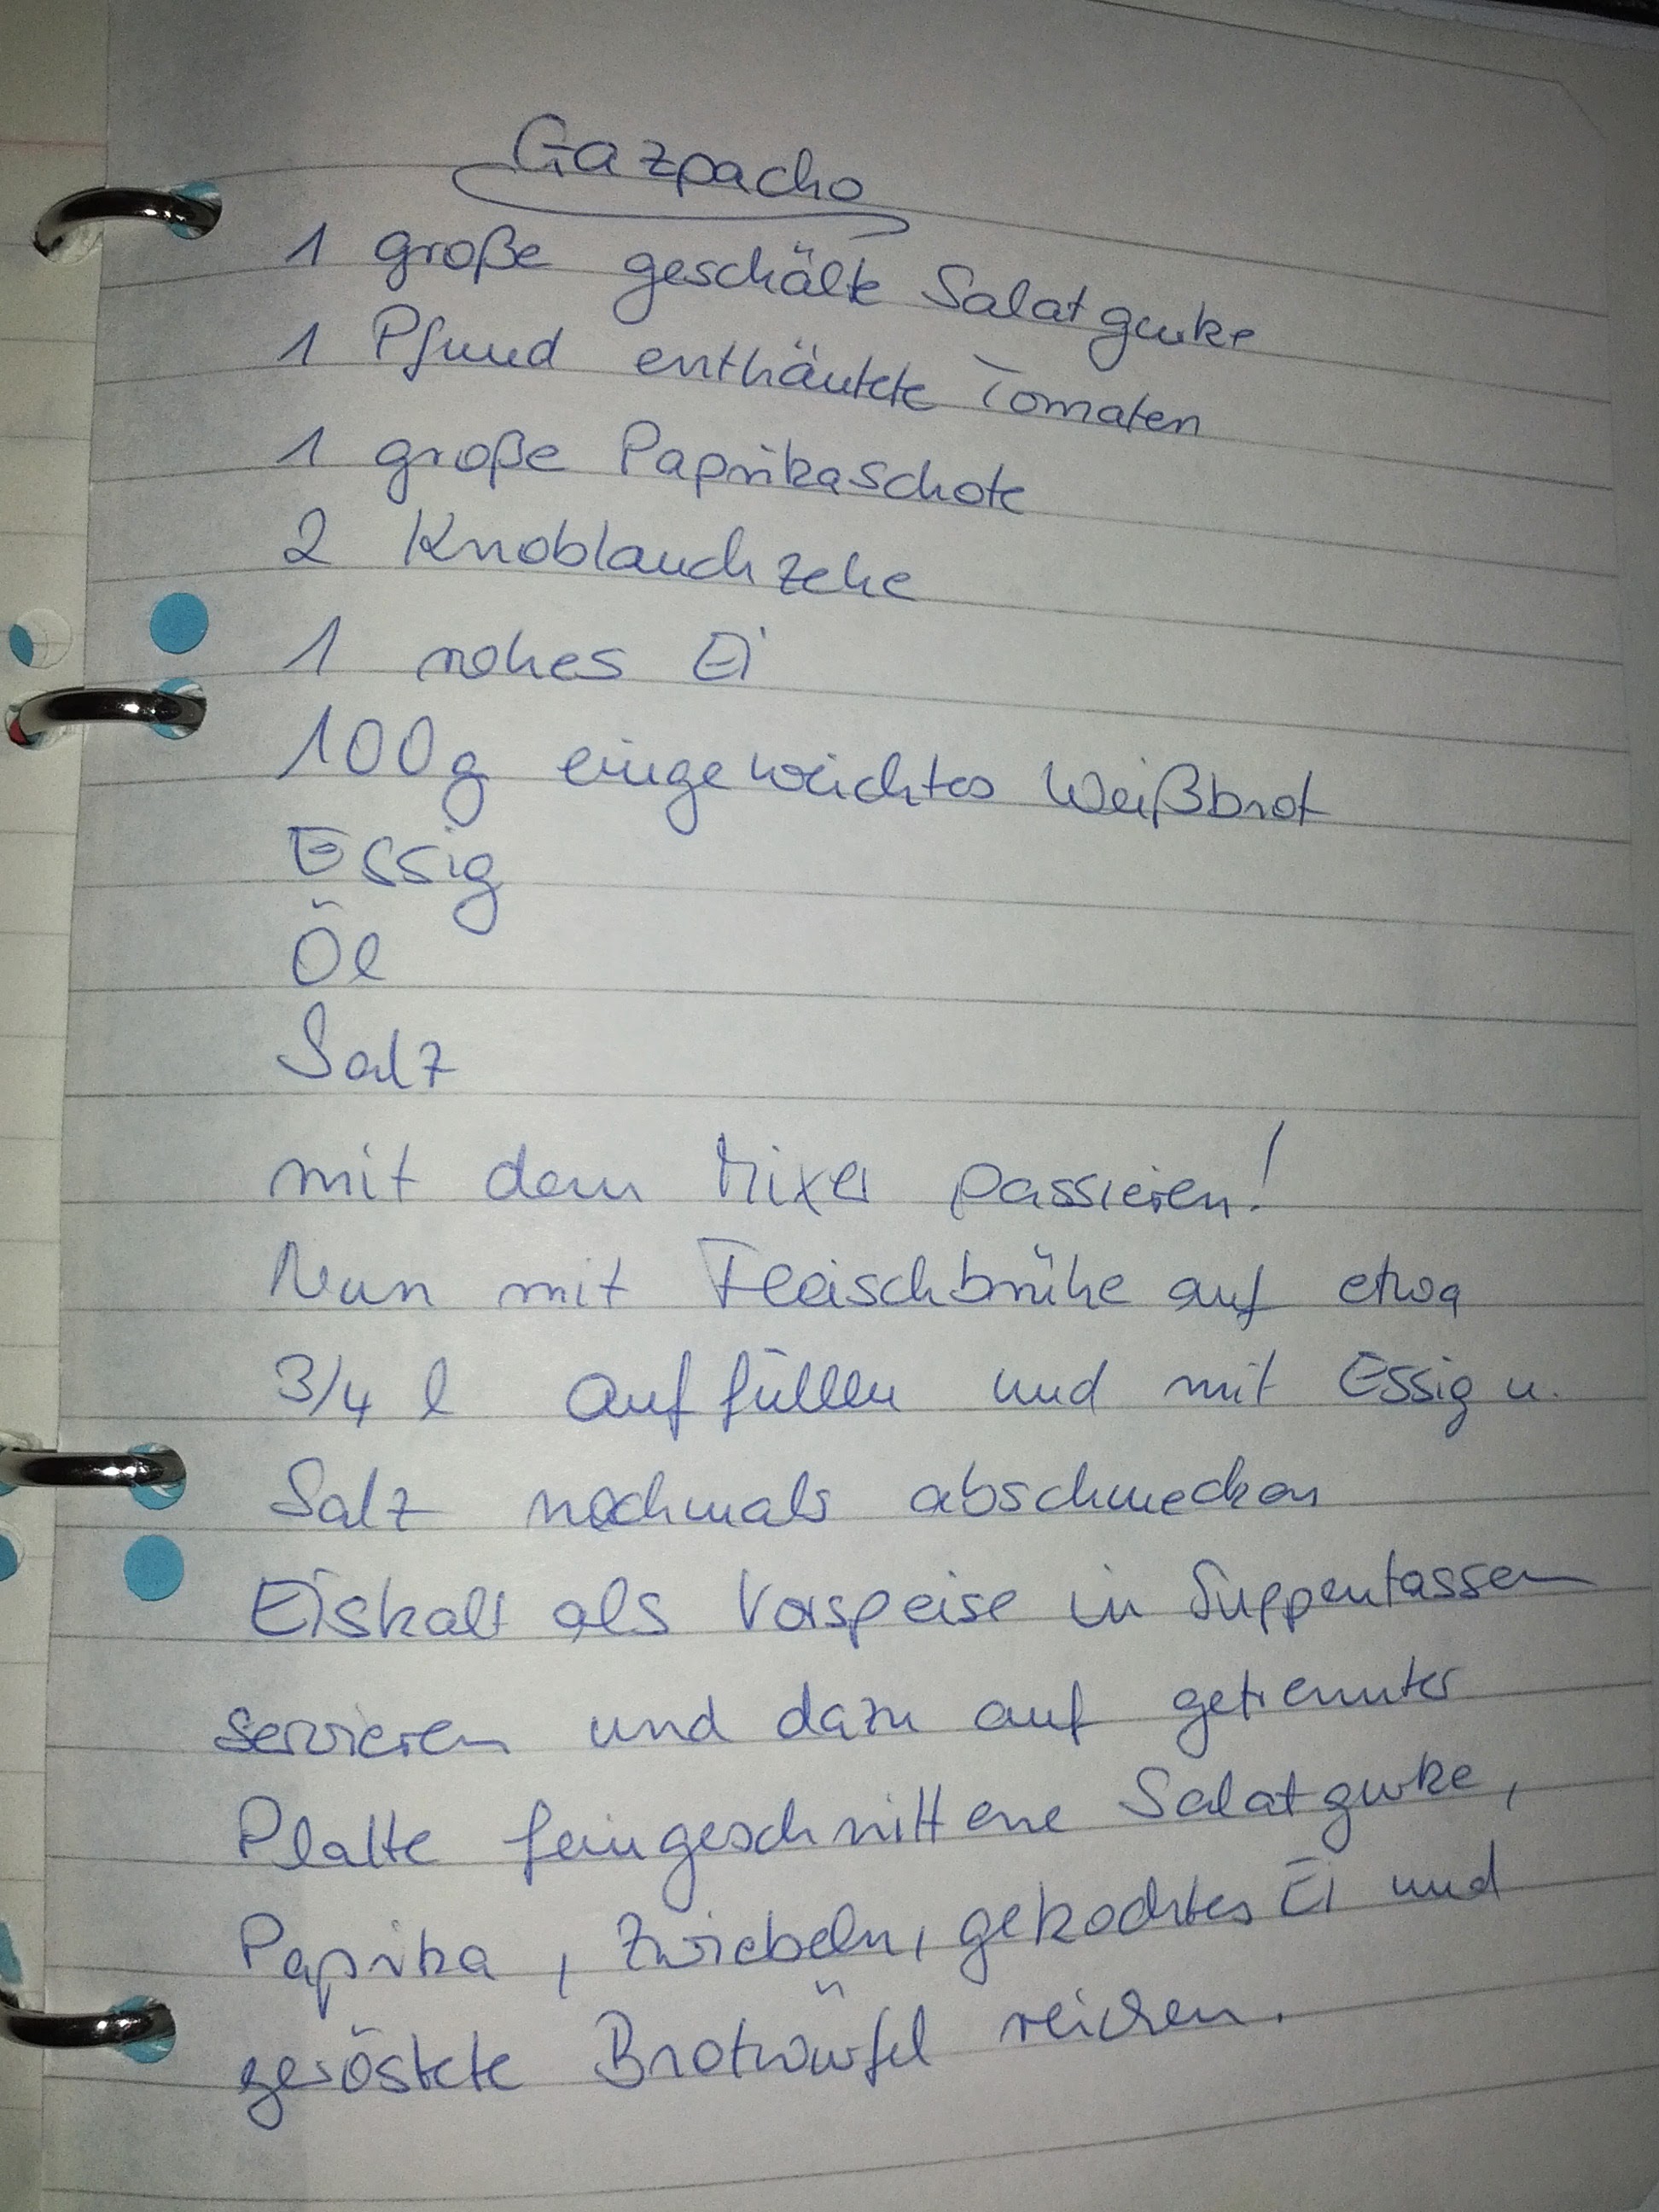 Gazpacho
1 große geschälte Salatgurke
1 Pfund enthäutete Tomaten
1 große Paprikaschote
2 Knoblauchzehe
1 rohes Ei
100g eingeweichtes Weißbrot
Essig
Öl
Salz
mit dem Mixer passieren!
Nun mit Fleischbrühe auf etwa
3/4 l auffüllen und mit Essig u.
Salz nochmals abschmecken
Eiskalt als Vorspeise in Suppentassen
servieren und dazu auf getrennter
Platte feingeschnittene Salatgurke,
Paprika, Zwiebeln, gekochtes Ei und
geröstete Brotwürfel reichen.